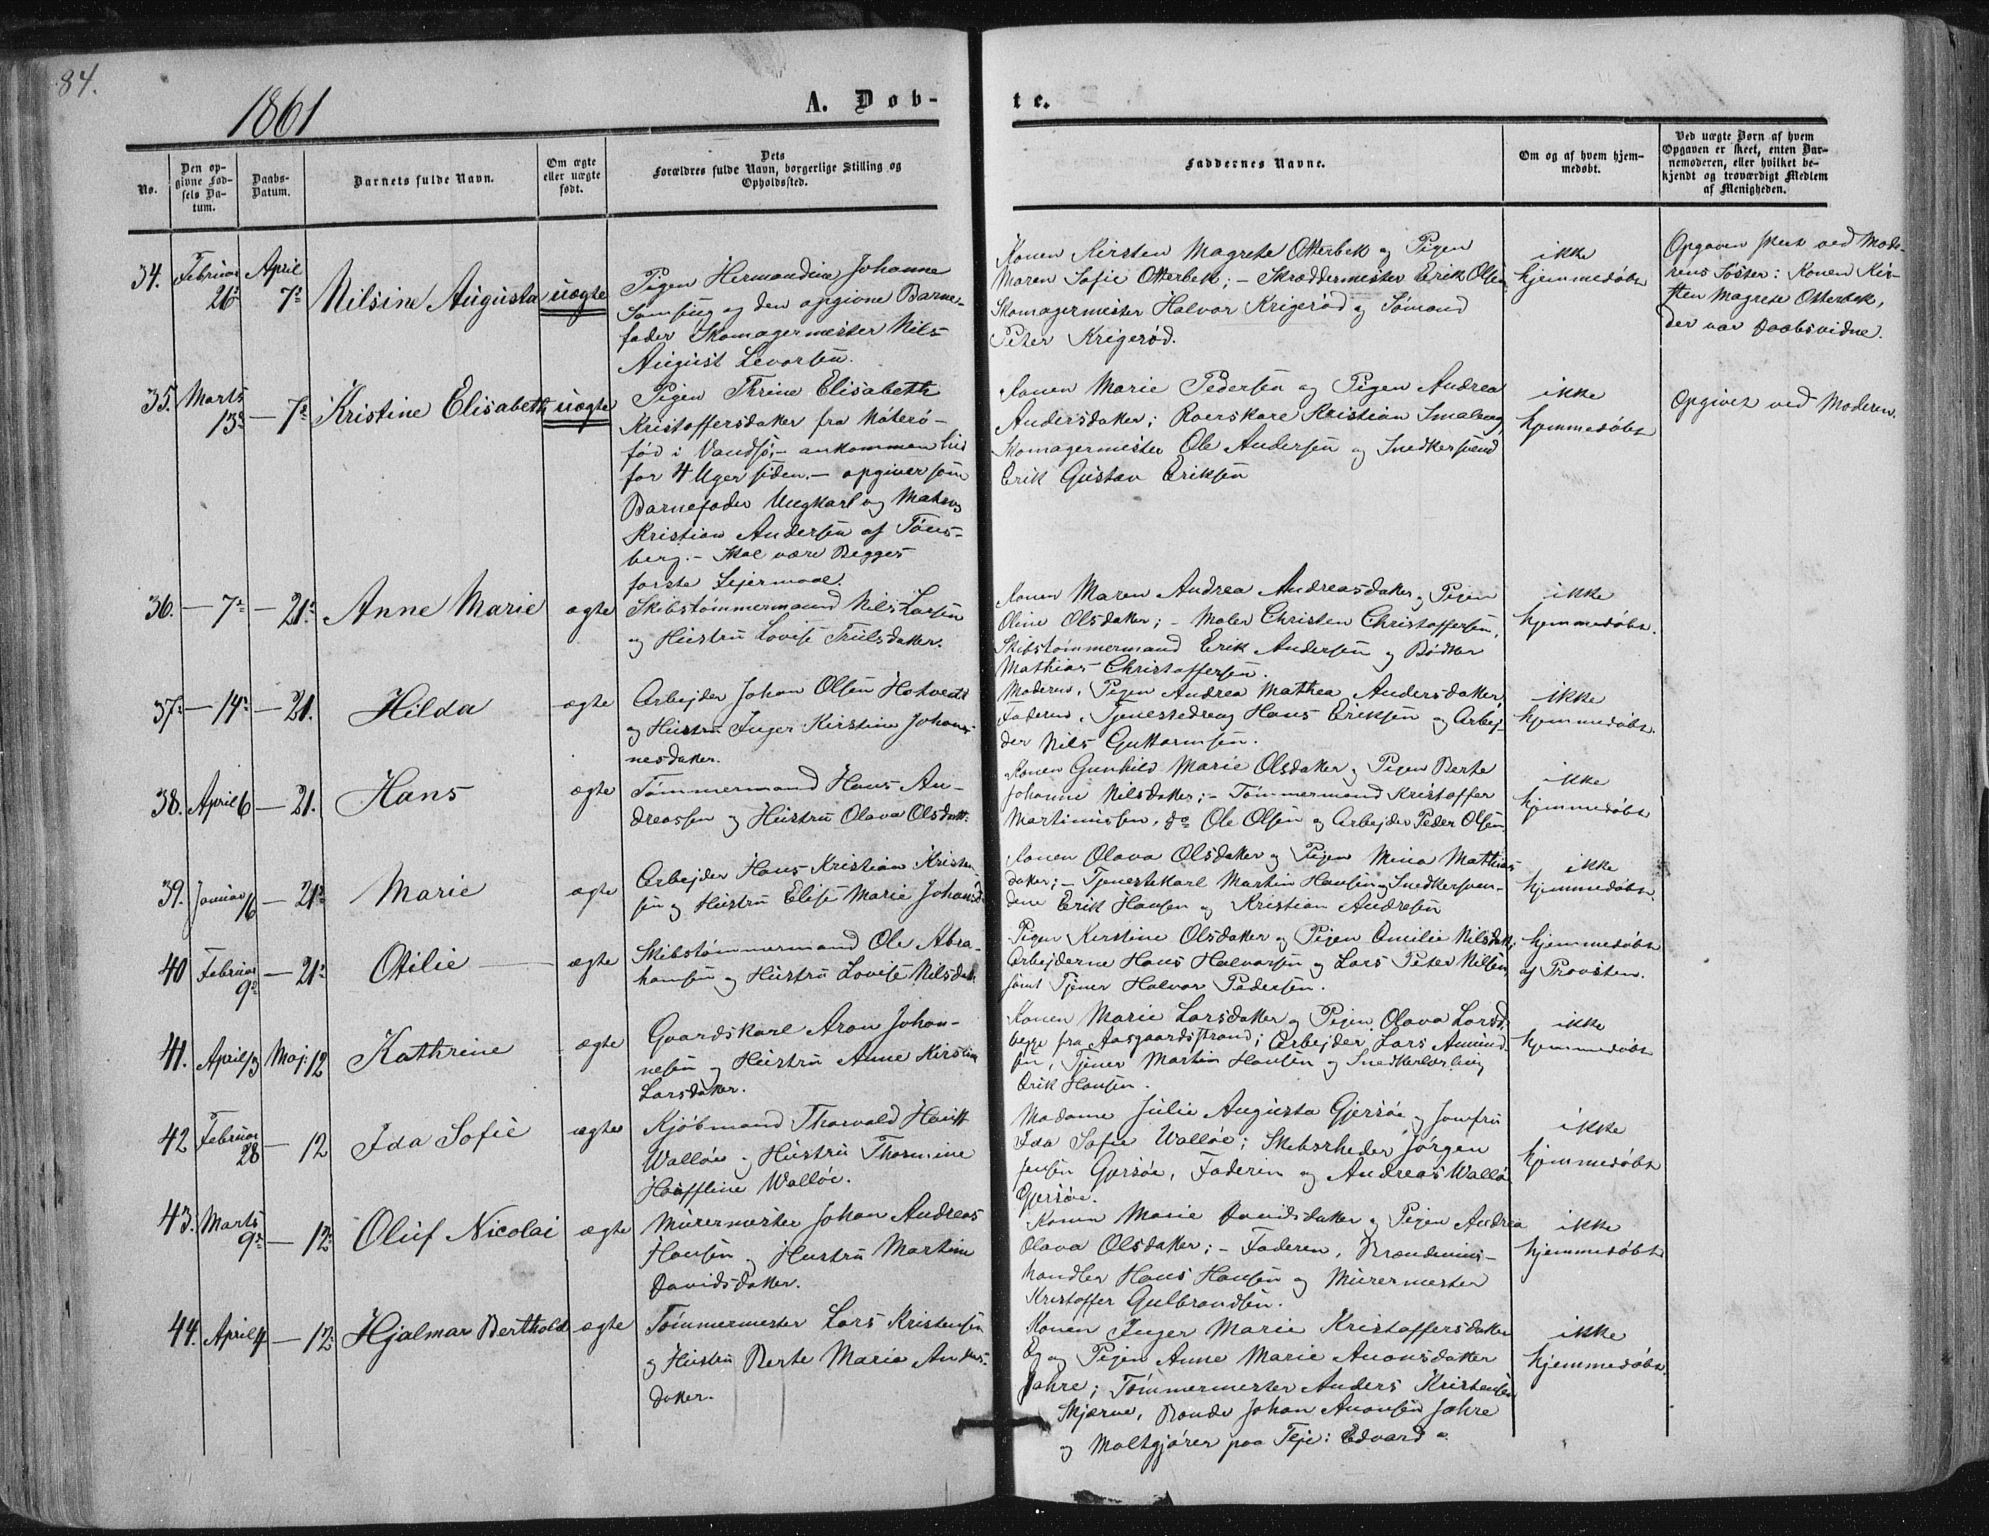 84.
1861
A. Døb-
te.
No.
Den op-
givne Fød-
sels Da-
tum.
Daabs-
Datum.
Barnets fulde Navn.
Om ægte
eller uægte
født.
Dets
Forældres fulde Navn, borgerlige Stilling og
Opholdssted.
Faddernes Navne.
Om og af hvem hjem-
medøbt.
Ved uægte Børn af hvem
Opgaven er skeet, enten Bar-
nemoderen, eller hvilket be-
kjendt og troværdigt Medlem
af Menigheden.
34. Februar 26. April 7. Nilsine Augusta uægte
Pigen Hermandine Johanne
og den opgivne Barne-
fader Skomagermester Nils
August Levorsen.
Konen Kirsten Magrete Otterbek og Pigen
Maren Sofie Otterbek; - Skræddermester Erik Olsen
Skomagermester Halvor Krigerød og Sømand
Peter Krigerød.
ikke
hjemmedøbt
Opgaven skeet ved Mode-
rens Søster: Konen Kir-
sten Magrete Otterbek,
der var Daabsvidne.
35. Marts 13. - 7. Kristine Elisabeth uægte
Pigen Thrine Elisabeth
Kristoffersdatter fra Nøterø-
fød i Vandsø; - ankommen hid
for 4 Uger siden. - opgiver som
Barnefader Ungkarl og Matros
Kristian Andersen af Tøns-
berg. - Skal være Begges
første Lejermaal.
Konen Marie Pedersen og Pigen Andrea
Andersdatter; Roerskarl Kristian Smaberg,
Skomagermester Ole Andersen og Snedkersvend
Erik Gustav Eriksen
ikke
hjemmedøbt
Opgivet ved Moderen.
36. - 7. - 21. Anne Marie ægte
Skibstømmermand Nils Larsen
og Hustru Lovise Trulsdatter.
Konen Maren Andrea Andreasdatter og Pigen
Oline Olsdatter; - Maler Christen Christoffersen,
Skibstømmermand Erik Andersen og Bødker
Mathias Christoffersen.
ikke
hjemmedøbt.
37. - 14. - 21. Hilda ægte
Arbejder Johan Olsen Hotvedt
og Hustru Inger Kirstine Johan-
nesdatter.
Moderen, Pigen Andrea Mathea Andersdatter,
Faderen, Tjenestedreng Hans Eriksen og Arbej-
der Nils Guttormsen.
ikke
hjemmedøbt.
38. April 6 - 21. Hans ægte
Tømmermand Hans An-
dreassen og Hustru Olava Olsdatt.
Konen Gunhild Marie Olsdatter og Pigen Berte
Johanne Nilsdatter; - Tømmermand Kristoffer
Martinussen, do Ole Olsen og Arbejder Peder Olsen
ikke
hjemmedøbt
39. Januar 16 - 21. Marie ægte
Arbejder Hans Kristian Kristen-
sen og Hustru Elise Marie Johansd
Konen Olava Olsdatter og Pigen Mina Mathias-
datter; - Tjenestekarl Martin Hansen og Snedkersven-
dene Erik Hansen og Kristian Andresen
ikke
hjemmedøbt.
40 Februar 9. - 21. Otilie ægte
Skibstømmermand Ole Abra-
hamsen og Hustru Lovise Nilsdat.
Pigen Kerstine Olsdatter og Pigen Emilie Nilsdatt,
Arbejderne Hans Halvorsen og Lars Peter Nilsen
samt Tjener Halvor Pedersen.
hjemmedøbt
af Provsten.
41. April 13 Maj. 12 Kathrine ægte
Gaardskarl Aron Johan-
nesen og Hustru Anne Kirstine
Larsdatter.
Konen Marie Larsdatter og Pigen Olava Larsd.
begge fra Aasgaardsstrand; Arbejder Lars Amund-
sen, Tjener Martin Hansen og Snedkerlærling
Erik Hansen.
ikke
hjemmedøbt
42 Februar 28 - 12 Ida Sofie ægte
Kjøbmand Thorvald
Walløe og Hustru Thormine
Walløe.
Madame Julie Augusta Gjersøe og Jomfru
Ida Sofie Walløe; Skibsrheder Jørgen
Jensen Gjersøe, Faderen og Andreas Walløe
Gjersøe.
ikke
hjemmedøbt
43. Marts 9. - 12. Oluf Nicolai ægte
Murermester Johan Andreas
Hansen og Hustru Martine
Davidsdatter.
Konen Marie Davidsdatter og Pigen Andrea
Olava Olsdatter; - Faderen, Brændeviins-
handler Hans Hansen og Murermester
Kristoffer Gulbrandsen.
ikke
hjemmedøbt
44. April 4 - 12. Hjalmar Berthold ægte
Tømmermester Lars Kristensen
og Hustru Berte Maria Anders-
datter.
Konen Inger Marie Kristoffersdatter
og Pigen Anne Marie Aronsdatter
Jahre; Tømmermester Anders Kristensen
Skjerve, Bonde Johan Aronsen Jahre
og Maltgjører paa Teje: Edvard
ikke
hjemmedøbt.